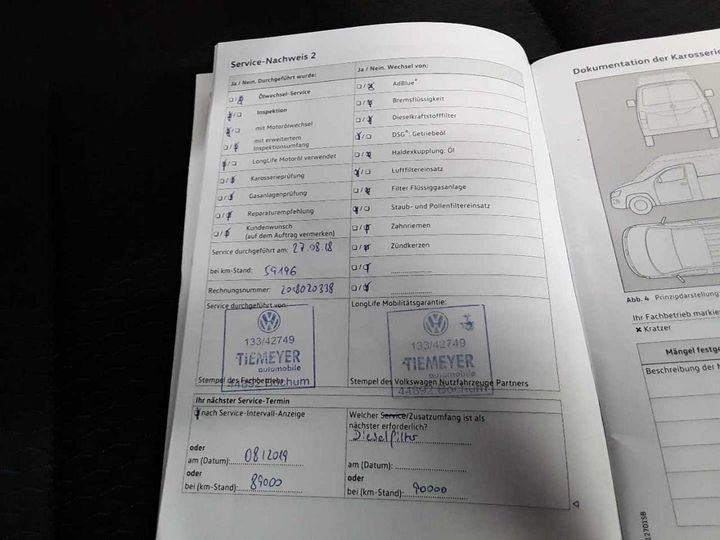 Service-Nachweis 2
Ja / Nein. Durchgeführt wurde:
Ölwechsel-Service
Inspektion
mit Motorölwechsel
mit erweitertem
Inspektionsumfang
LongLife Motoröl verwendet
Karosserieprüfung
Gasanlagenprüfung
Reparaturempfehlung
Kundenwunsch
(auf dem Auftrag vermerken)
Service durchgeführt am: 27.08.18
bei km-Stand: 59196
Rechnungsnummer: 2018020338
Ja / Nein. Wechsel von:
AdBlue®
Bremsflüssigkeit
Dieselkraftstofffilter
DSG®: Getriebeöl
Haldexkupplung: Öl
Luftfiltereinsatz
Filter Flüssiggasanlage
Staub- und Pollenfiltereinsatz
Zahnriemen
Zündkerzen
Service durchgeführt von:
133/42749
TIEMEYER
automobile
44892 Bochum
Stempel des Fachbetriebs
LongLife Mobilitätsgarantie:
133/42749
TIEMEYER
automobile
44892 Bochum
Stempel des Volkswagen Nutzfahrzeuge Partners
Ihr nächster Service-Termin
nach Service-Intervall-Anzeige
oder
am (Datum): 08/2019
oder
bei (km-Stand): 89000
Welcher Service/Zusatzumfang ist als
nächster erforderlich?
Dieselfilter
am (Datum):
oder
bei (km-Stand): 90000
Dokumentation der Karosserie
Abb. 4 Prinzipdarstellung:
Ihr Fachbetrieb markie
× Kratzer
Mängel festg
Beschreibung der M